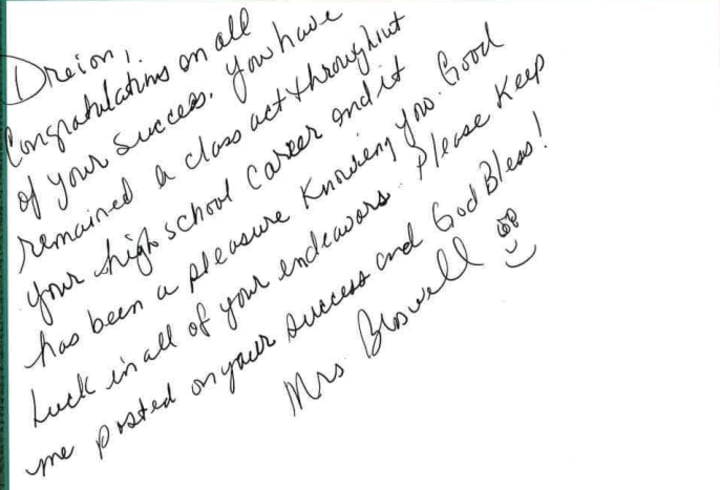 Dreion,
Congratulations on all
of your success. You have
remained a class act throughout
your high school career and it
has been a pleasure knowing you. Good
Luck in all of your endeavors. Please Keep
me posted on your success and God Bless!
Mrs.